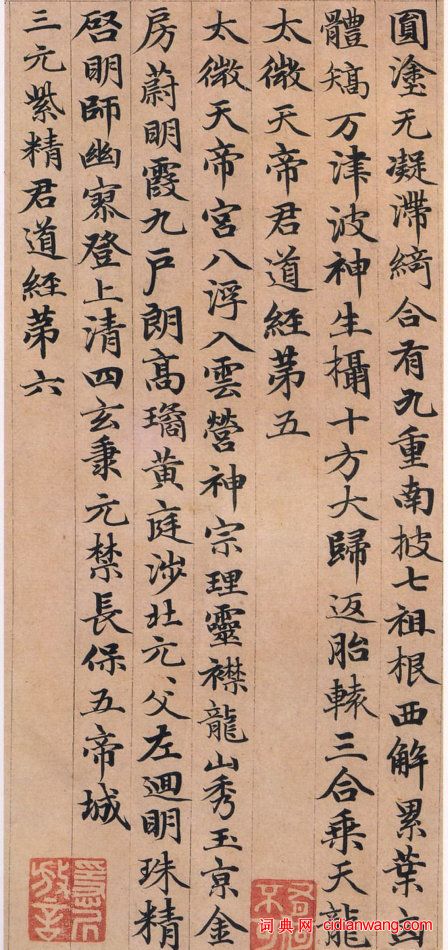 圓塗无凝滯綺合有九重南披七祖根西解累葉
體矯万津波神生攝十方大歸返胎轅三合乘天龍
太微天帝君道經第五
太微天帝宮八浮入雲營神宗理靈襟龍山秀玉京金
房蔚明霞九戶朗高璚黃庭涉壯元父左迴明珠精
啓明師幽寮登上清四玄秉元禁長保五帝城
三元紫精君道經第六
词典网 cidianwang.com